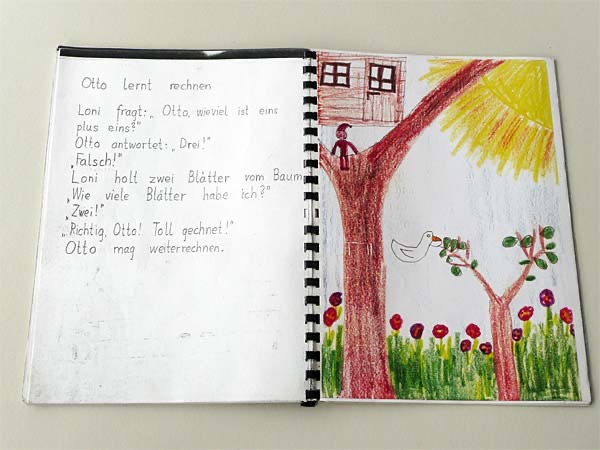 Otto lernt rechnen
Loni fragt: „Otto, wieviel ist eins
plus eins?"
Otto antwortet: „Drei!"
„Falsch!"
Loni holt zwei Blätter vom Baum
„Wie viele Blätter habe ich?"
„Zwei!"
„Richtig, Otto! Toll gechnet!"
Otto mag weiterrechnen.